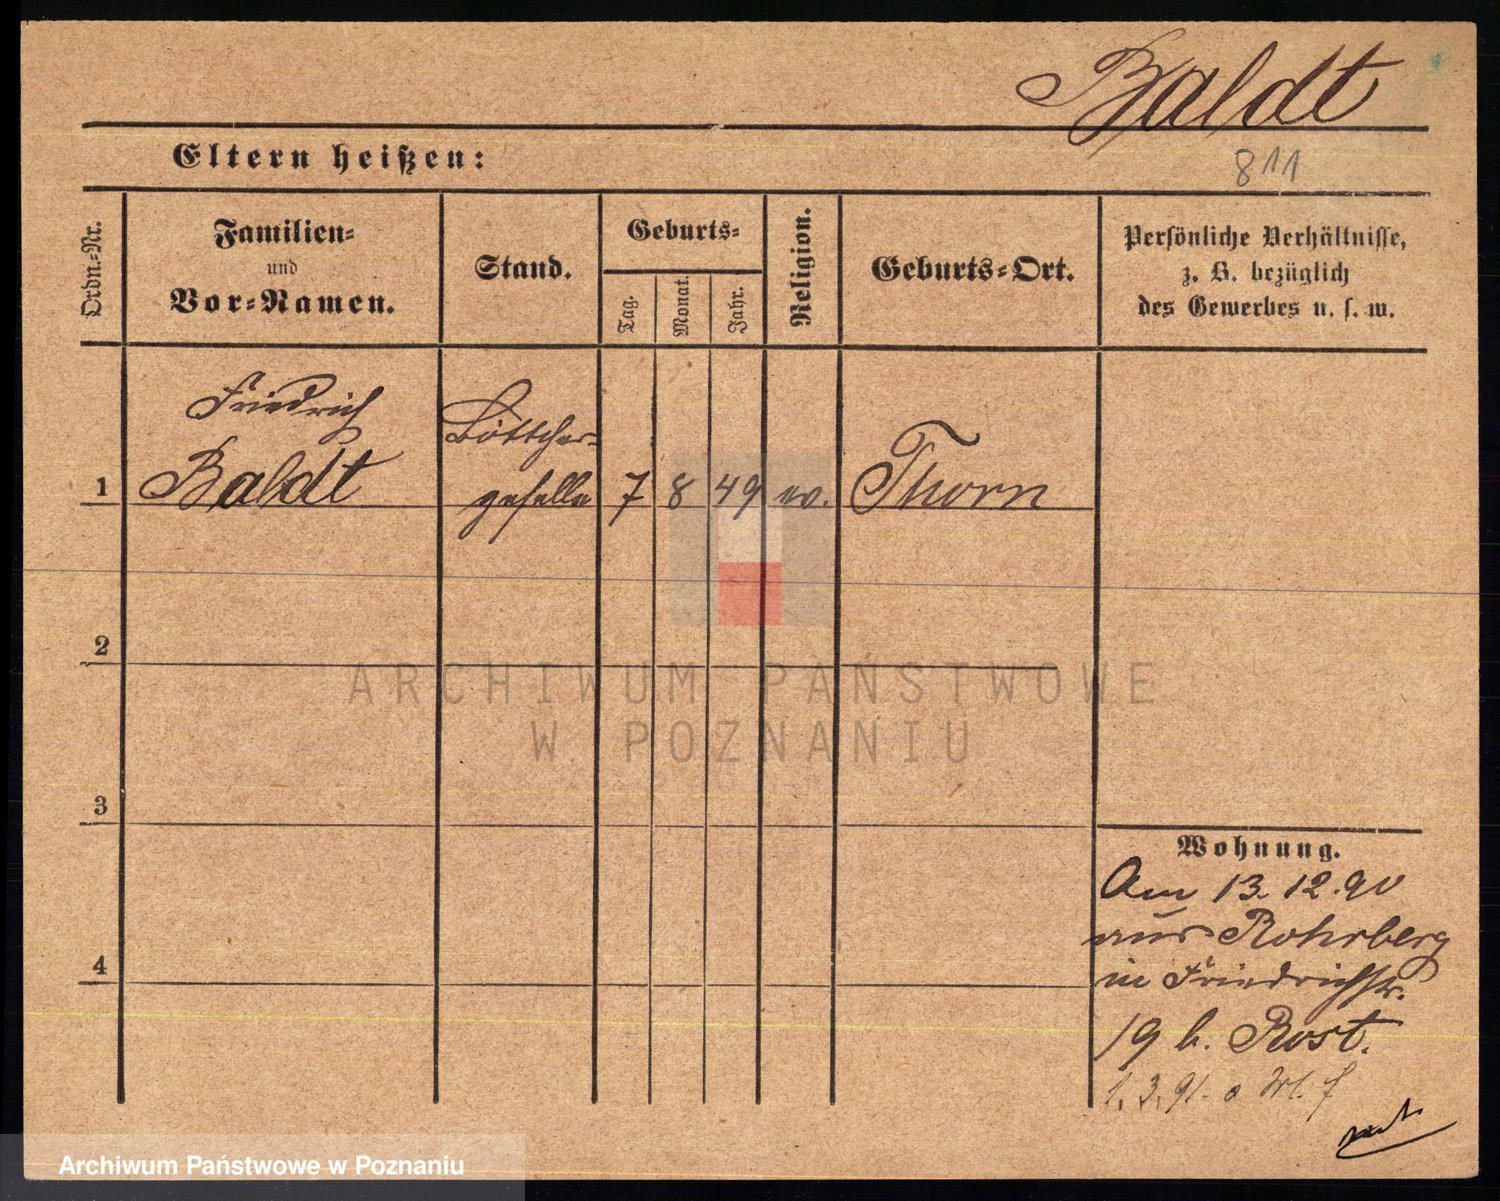 Baldt
811
Eltern heißen:
Ordn.-Nr.
Familien-
und
Vor-Namen.
Stand.
Geburts-
Tag.
Monat.
Jahr.
Religion.
Geburts-Ort.
Persönliche Verhältnisse,
z. B. bezüglich
des Gewerbes u. s. w.
Friedrich
Baldt
Böttcher-
geselle
1
7
8
49
ev.
Thorn
2
3
4
ARCHIWUM PAŃSTWOWE
W POZNANIU
Wohnung.
Am 13. 12. 90
aus Rohrberg
in Friedrichstr.
19 b. Rost.
1. 3. 91.
Archiwum Państwowe w Poznaniu